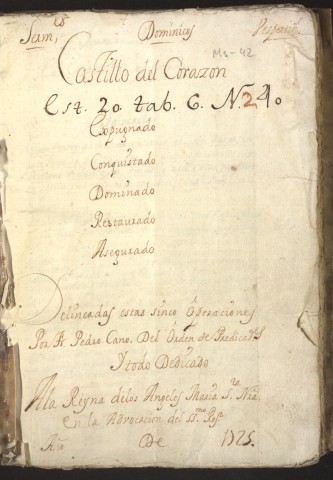 Dominicos
Ms-42
Castillo del Corazon
Est. 20. tab. 6. N. 24.
Expugnado
Conquistado
Dominado
Restaurado
Asegurado
Delineadas estas sinco Operaciones
Por Fr Pedro Cano. Del Orden de Predicad.s
Y todo Dedicado
Alla Reyna delos Angeles Maria S.ra Nra.
en la Advocacion del SS.mo Ros.o
Año De 1725.